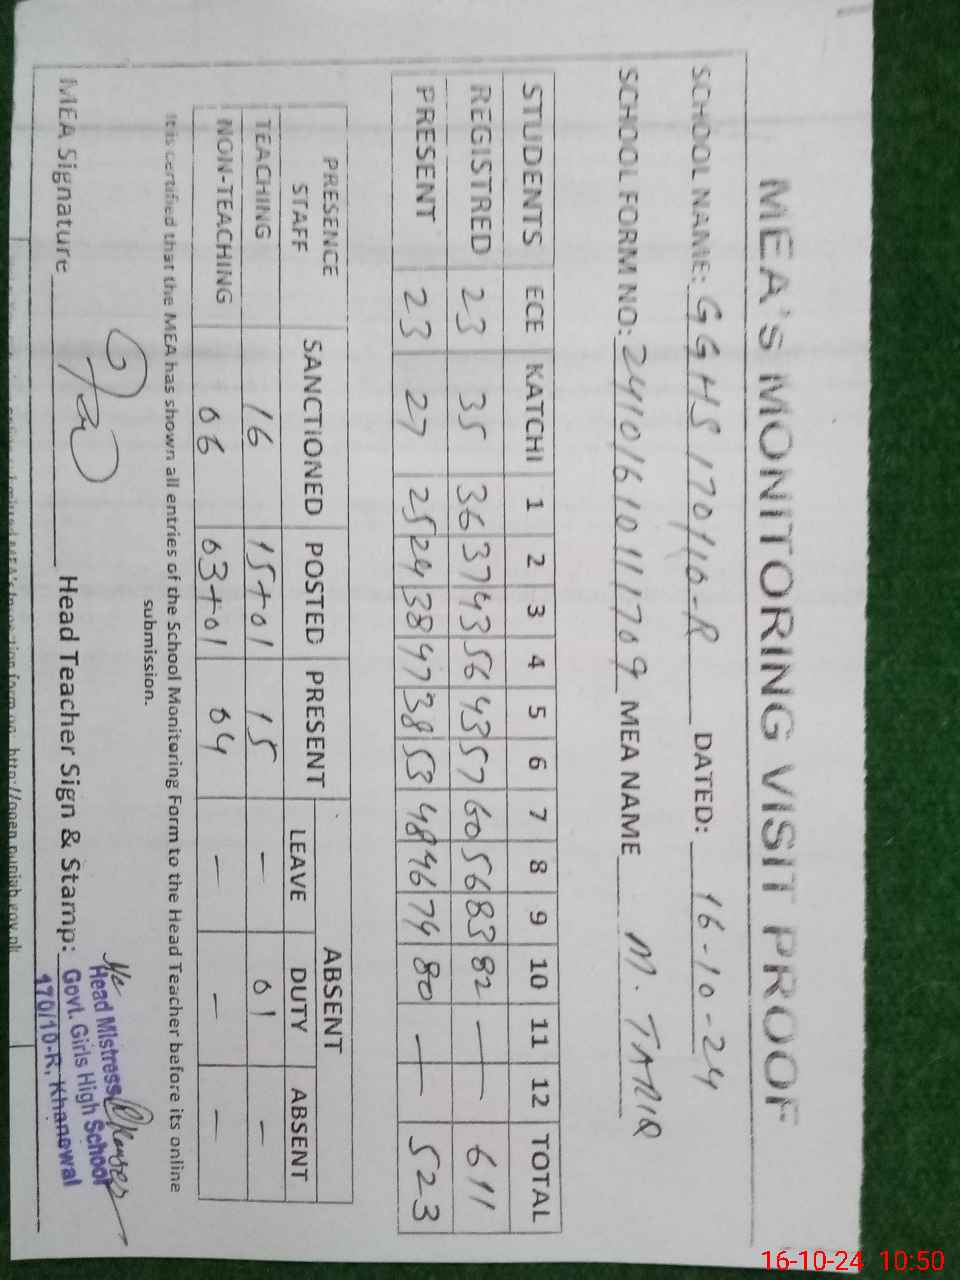 MEA'S MONITORING VISIT PROOF
SCHOOL NAME: GGHS 170/10-R DATED: 16-10-24
SCHOOL FORM NO: 24101610111709 MEA NAME M. TARIQ
STUDENTS ECE KATCHI 1 2 3 4 5 6 7 8 9 10 11 12 TOTAL
REGISTRED 23 35 36 37 43 56 43 57 60 56 83 82 — — 611
PRESENT 23 27 25 24 38 47 38 53 48 46 74 80 — — 523
PRESENCE STAFF SANCTIONED POSTED PRESENT ABSENT
LEAVE DUTY ABSENT
TEACHING 16 15+01 15 — 01 —
NON-TEACHING 06 03+01 04 — — —
It is certified that the MEA has shown all entries of the School Monitoring Form to the Head Teacher before its online
submission.
MEA Signature Head Teacher Sign & Stamp:
Head Mistress
Govt. Girls High School
170/10-R, Khanewal
16-10-24 10:50